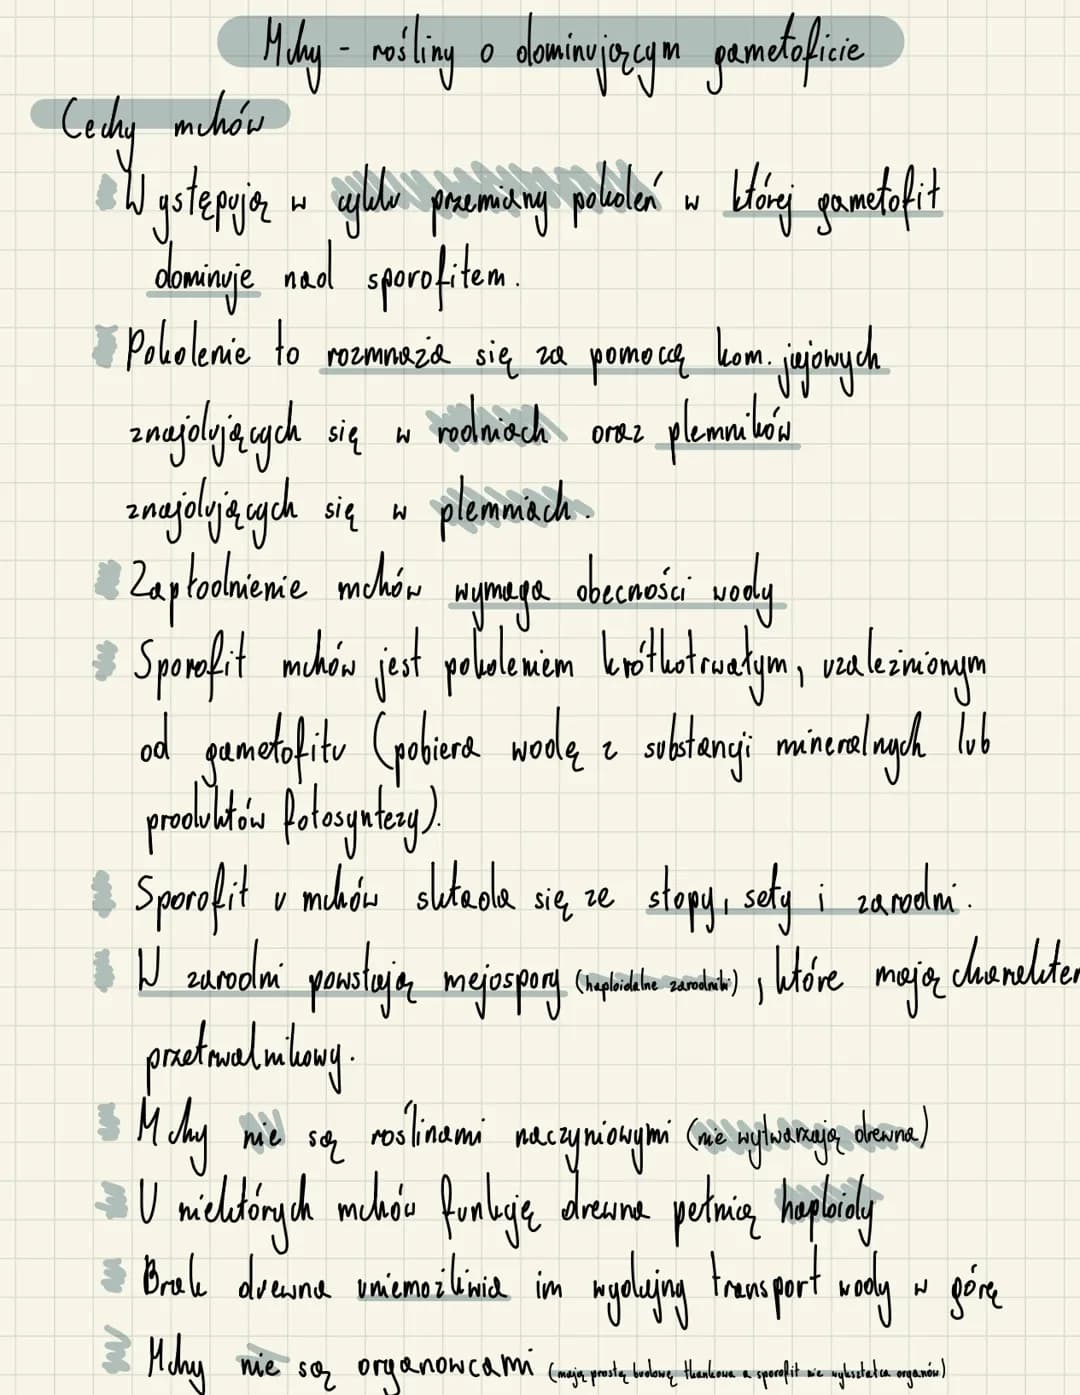 Mchy - rośliny o dominującym gametoficie
Cechy mchów
Występują w cyklu przemiany pokoleń w której gametofit
dominuje nad sporofitem.
Pokolenie to rozmnaża się za pomocą kom. jajowych
znajdujących się w rodniach oraz plemników
znajdujących się w plemniach.
Zapłodnienie mchów wymaga obecności wody
Sporofit mchów jest pokoleniem krótkotrwałym, uzależnionym
od gametofitu (pobiera wodę z substancji mineralnych lub
produktów fotosyntezy).
Sporofit u mchów składa się ze stopy, sety i zarodni.
W zarodni powstają mejospory (haploidalne zarodniki), które mają charakter
przetrwalnikowy.
Mchy nie są roślinami naczyniowymi (nie wytwarzają drewna)
U niektórych mchów funkcję drewna pełnią haploidy
Brak drewna uniemożliwia im wydajny transport wody w górę
Mchy nie są organowcami (mają prostą budowę tkankową a sporofit nie wykształca organów)